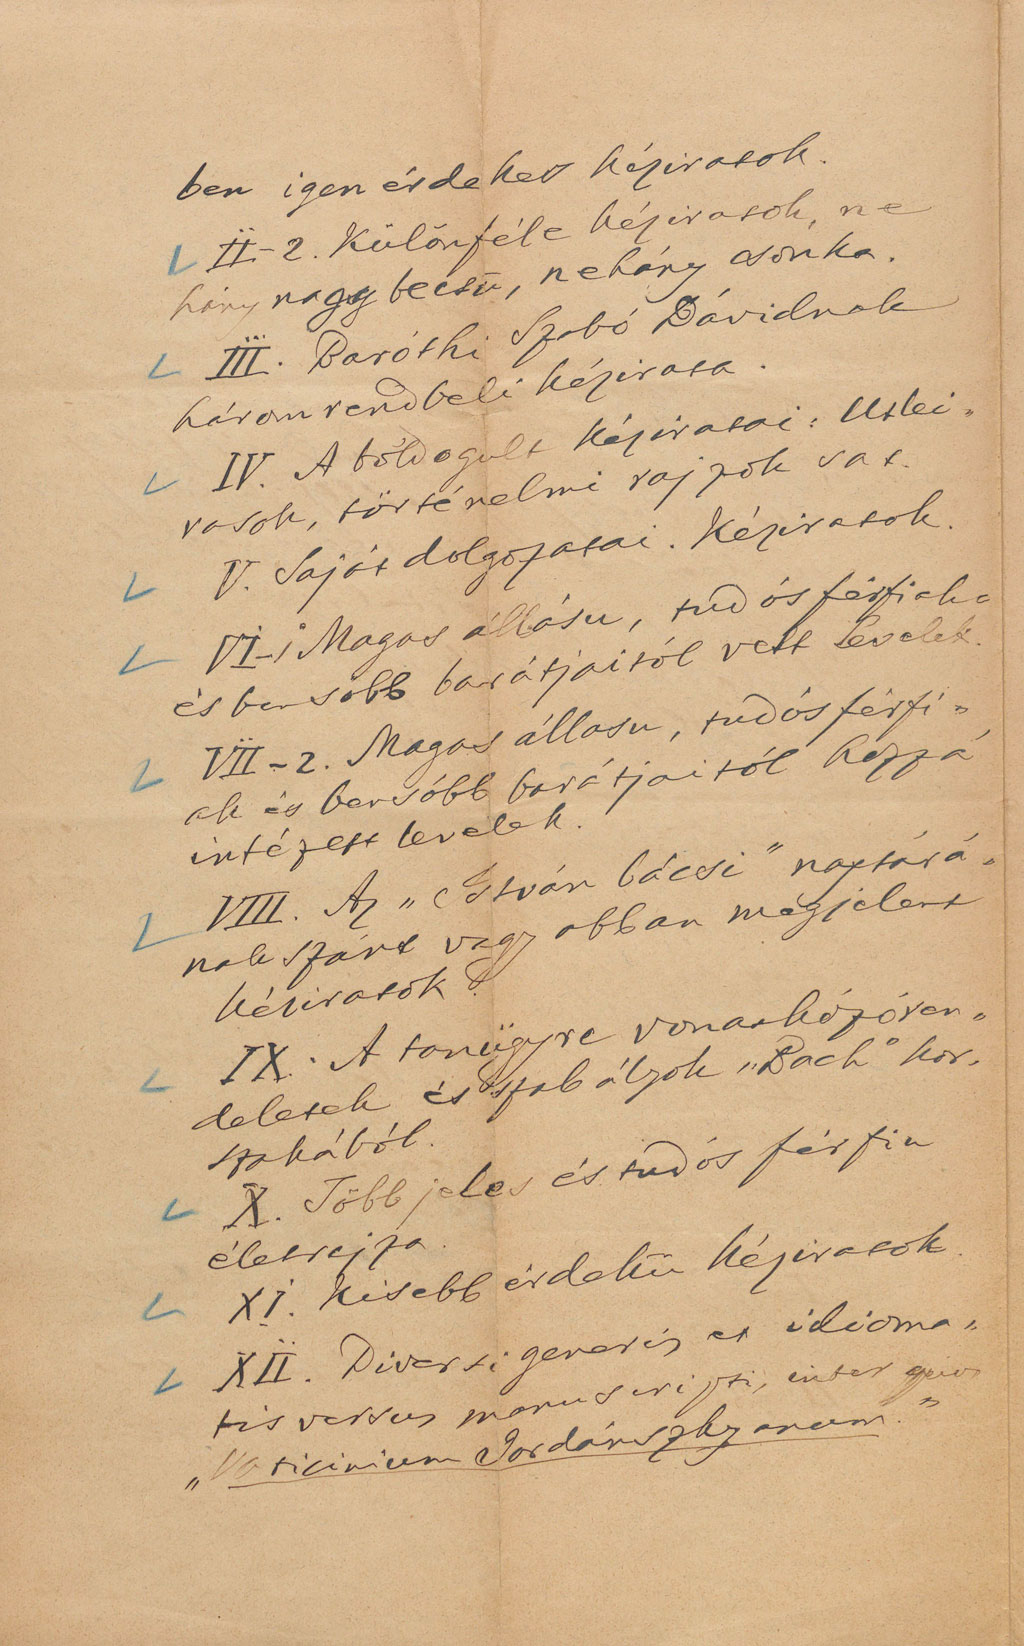 ben igen érdekes kéziratok.
II-2. Különféle kéziratok, ne
hány nagy becsű, nehány csonka.
III. Baróthi Szabó Dávidnak
három rendbeli kézirata.
IV. A bóldogult kéziratai: Utlei-
ratok, történelmi rajzok sat.
V. Saját dolgozatai. Kéziratok.
VI-1 Magas állásu, tudós férfiak
és bensőbb barátjaitól vett levelek.
VII-2. Magas állásu, tudós férfi-
ak és bensőbb barátjaitól hozzá
intézett levelek.
VIII. Az „István bácsi" naptárá-
nak szánt vagy abban megjelent
kéziratok.
IX. A tanügyre vonatkózó ren-
deletek és szabályok „Bach" kor-
szakából.
X. Több jeles és tudós férfiu
életrajza.
XI. Kisebb érdekü kéziratok.
XII. Diversi generis et idioma-
tis versus manuscripti, inter quos
„Vaticinium Jordánszkyanum."